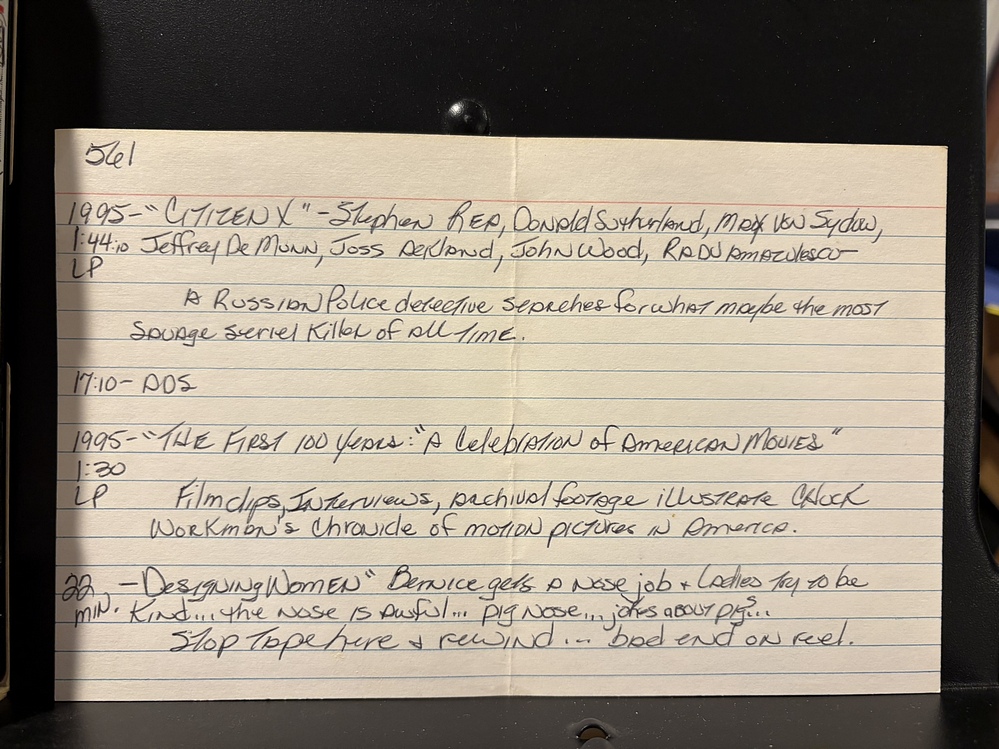 561
1995-"CITIZEN X"-Stephen REA, Donald Sutherland, MAX VON Sydow,
1:44:10 Jeffrey DeMunn, Joss Ackland, John Wood, RADU AMAZULESCO
LP
A RUSSIAN Police detective searches for what maybe the most
savage seriel killer of all time.
17:10- ADS
1995-"THE FIRST 100 years: "A Celebration of American Movies"
1:30
LP Film clips, Interviews, archival footage illustrate Chuck
Workman's Chronicle of motion pictures in America.
22 - Designing Women" Bernice gets a nose job & Ladies try to be
min. Kind... the nose is awful... pig nose... jokes about pigs...
Stop Tape here & rewind... bad end on reel.